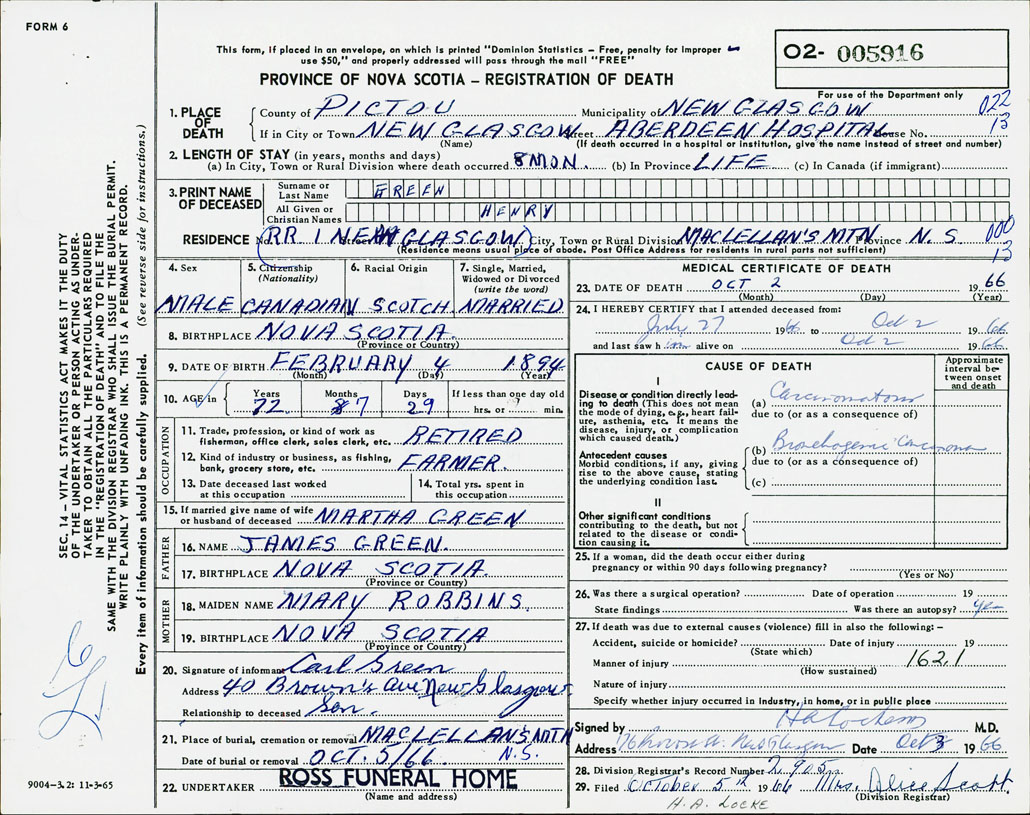 FORM 6
This form, if placed in an envelope, on which is printed "Dominion Statistics – Free, penalty for improper
use $50," and properly addressed will pass through the mail "FREE"
O2- 005916
PROVINCE OF NOVA SCOTIA – REGISTRATION OF DEATH
For use of the Department only
1. PLACE OF DEATH
County of PICTOU Municipality of NEW GLASGOW 022
If in City or Town NEW GLASGOW Street ABERDEEN HOSPITAL House No. 13
(Name) (If death occurred in a hospital or institution, give the name instead of street and number)
2. LENGTH OF STAY (in years, months and days)
(a) In City, Town or Rural Division where death occurred 8 MON. (b) In Province LIFE (c) In Canada (if immigrant)
3. PRINT NAME OF DECEASED
Surname or Last Name GREEN
All Given or Christian Names HENRY
RESIDENCE No. RR 1 Street NEW GLASGOW City, Town or Rural Division MACLELLAN'S MTN Province N. S. 000
(Residence means usual place of abode. Post Office Address for residents in rural parts not sufficient) 13
4. Sex
MALE
5. Citizenship (Nationality)
CANADIAN
6. Racial Origin
SCOTCH
7. Single, Married, Widowed or Divorced (write the word)
MARRIED
8. BIRTHPLACE NOVA SCOTIA.
(Province or Country)
9. DATE OF BIRTH FEBRUARY 4 1894
(Month) (Day) (Year)
10. AGE in Years 72 Months 8 7 Days 29 If less than one day old hrs. or min.
OCCUPATION
11. Trade, profession, or kind of work as fisherman, office clerk, sales clerk, etc. RETIRED
12. Kind of industry or business, as fishing, bank, grocery store, etc. FARMER.
13. Date deceased last worked at this occupation
14. Total yrs. spent in this occupation
15. If married give name of wife or husband of deceased MARTHA GREEN
FATHER
16. NAME JAMES GREEN.
17. BIRTHPLACE NOVA SCOTIA.
(Province or Country)
MOTHER
18. MAIDEN NAME MARY ROBBINS.
19. BIRTHPLACE NOVA SCOTIA
(Province or Country)
20. Signature of informant Carl Green
Address 40 Brown's Ave New Glasgow
Relationship to deceased Son.
21. Place of burial, cremation or removal MACLELLAN'S MTN
Date of burial or removal OCT. 5/66 N.S.
22. UNDERTAKER ROSS FUNERAL HOME
(Name and address)
MEDICAL CERTIFICATE OF DEATH
23. DATE OF DEATH OCT 2 1966
(Month) (Day) (Year)
24. I HEREBY CERTIFY that I attended deceased from:
July 27 1966 to Oct 2 1966
and last saw him alive on Oct 2 1966
CAUSE OF DEATH
Approximate interval between onset and death
I
Disease or condition directly leading to death (This does not mean the mode of dying, e.g., heart failure, asthenia, etc. It means the disease, injury, or complication which caused death.)
(a) Carcinomatosis
due to (or as a consequence of)
Antecedent causes
Morbid conditions, if any, giving rise to the above cause, stating the underlying condition last.
(b) Bronchogenic Carcinoma
due to (or as a consequence of)
(c)
II
Other significant conditions contributing to the death, but not related to the disease or condition causing it.
25. If a woman, did the death occur either during pregnancy or within 90 days following pregnancy?
(Yes or No)
26. Was there a surgical operation? Date of operation 19
State findings Was there an autopsy? yes
27. If death was due to external causes (violence) fill in also the following: –
Accident, suicide or homicide? Date of injury 19
(State which)
Manner of injury 162.1
(How sustained)
Nature of injury
Specify whether injury occurred in industry, in home, or in public place
Signed by M.D.
Address New Glasgow Date Oct 3 1966
28. Division Registrar's Record Number 2905
29. Filed October 5th 1966 Mrs. Alice Scott
(Division Registrar)
H. A. LOCKE
SEC. 14 – VITAL STATISTICS ACT MAKES IT THE DUTY
OF THE UNDERTAKER OR PERSON ACTING AS UNDER-
TAKER TO OBTAIN ALL THE PARTICULARS REQUIRED
IN THE "REGISTRATION OF DEATH" AND TO FILE THE
SAME WITH THE DIVISION REGISTRAR WHO SHALL ISSUE THE BURIAL PERMIT.
WRITE PLAINLY WITH UNFADING INK. THIS IS A PERMANENT RECORD.
Every item of information should be carefully supplied. (See reverse side for instructions.)
9004-3.2: 11-3-65